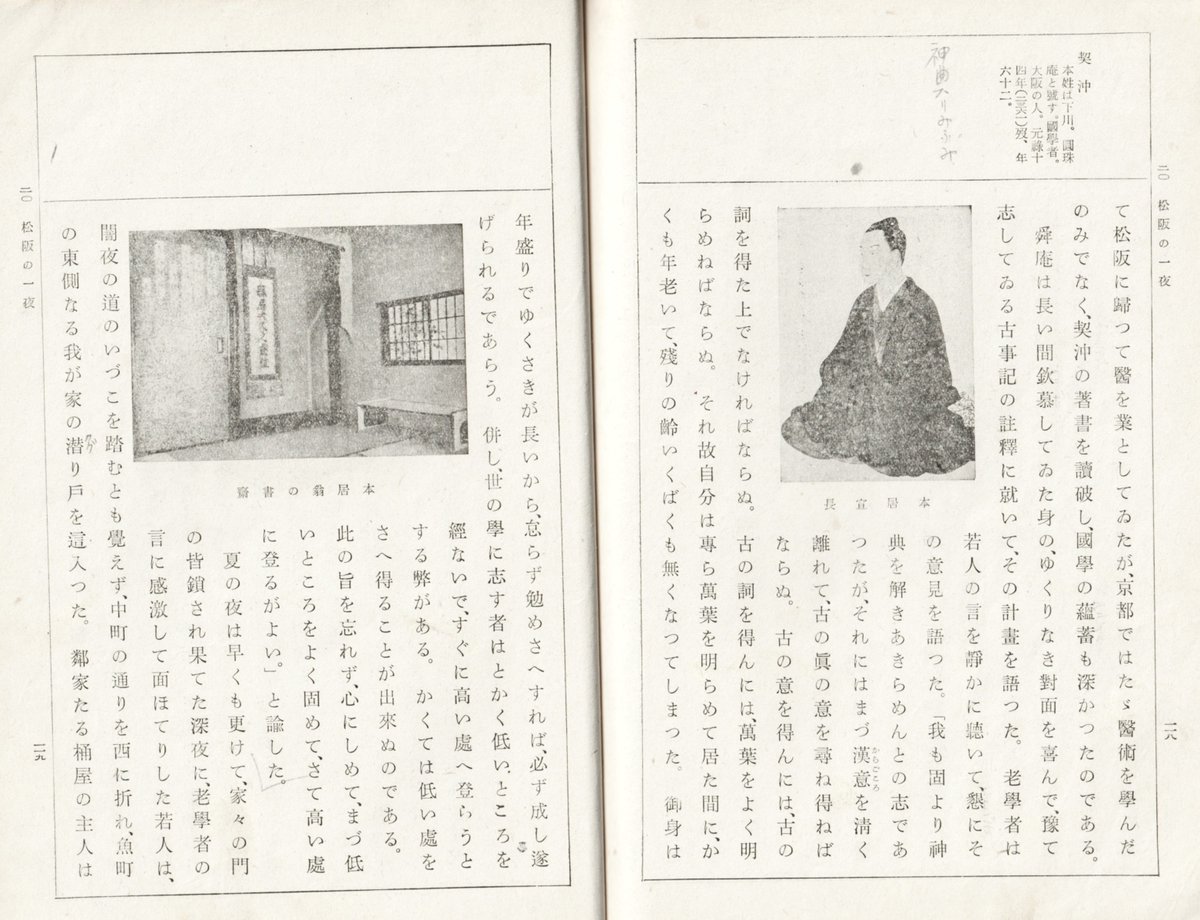 二〇 松阪の一夜
一一八
契沖
本姓は下川。圓珠
庵と號す。國學者。
大阪の人。元祿十
四年(二三六一)歿、年
六十二。
て松阪に歸つて醫を業としてゐたが、京都ではたゞ醫術を學んだ
のみでなく、契沖の著書を讀破し、國學の蘊蓄も深かつたのである。
舜庵は長い間欽慕してゐた身の、ゆくりなき對面を喜んで、豫て
志してゐる古事記の註釋に就いて、その計畫を語つた。老學者は
若人の言を靜かに聽いて、懇にそ
の意見を語つた。「我も固より神
典を解きあきらめんとの志であ
つたが、それにはまづ漢意を淸く
からごころ
離れて、古の眞の意を尋ね得ねば
ならぬ。古の意を得んには、古の
本居宣長
詞を得た上でなければならぬ。古の詞を得んには、萬葉をよく明
らめねばならぬ。それ故自分は專ら萬葉を明らめて居た間に、か
くも年老いて、殘りの齡いくばくも無くなつてしまつた。御身は
年盛りでゆくさきが長いから、怠らず勉めさへすれば、必ず成し遂
げられるであらう。併し、世の學に志す者はとかく低いところを
經ないで、すぐに高い處へ登らうと
する弊がある。かくては低い處を
さへ得ることが出來ぬのである。
此の旨を忘れず、心にしめて、まづ低
いところをよく固めて、さて高い處
に登るがよい。」と諭した。
夏の夜は早くも更けて、家々の門
の皆鎖され果てた深夜に、老學者の
言に感激して面ほてりした若人は、
本居翁の書齋
闇夜の道のいづこを踏むとも覺えず、中町の通りを西に折れ、魚町
の東側なる我が家の潜り戶を這入つた。鄰家たる桶屋の主人は
二〇 松阪の一夜
一一九